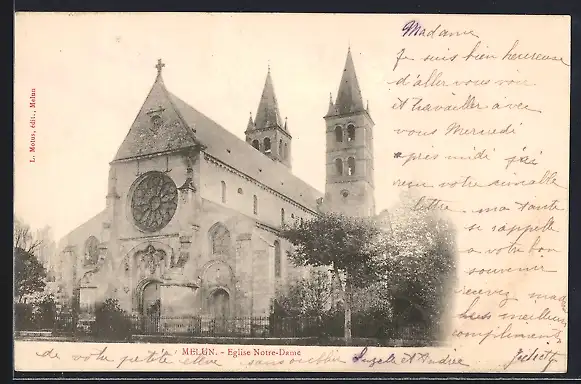 Madame
Je suis bien heureuse
d'aller vous voir
et travailler avec
vous Mercredi
après midi j'ai
reçu votre aimable
lettre ma tante
se rappelle
a votre bon
souvenir
recevez mada
mes compliments
de votre petite élève
L. Motus, édit., Melun
MELUN. - Eglise Notre-Dame